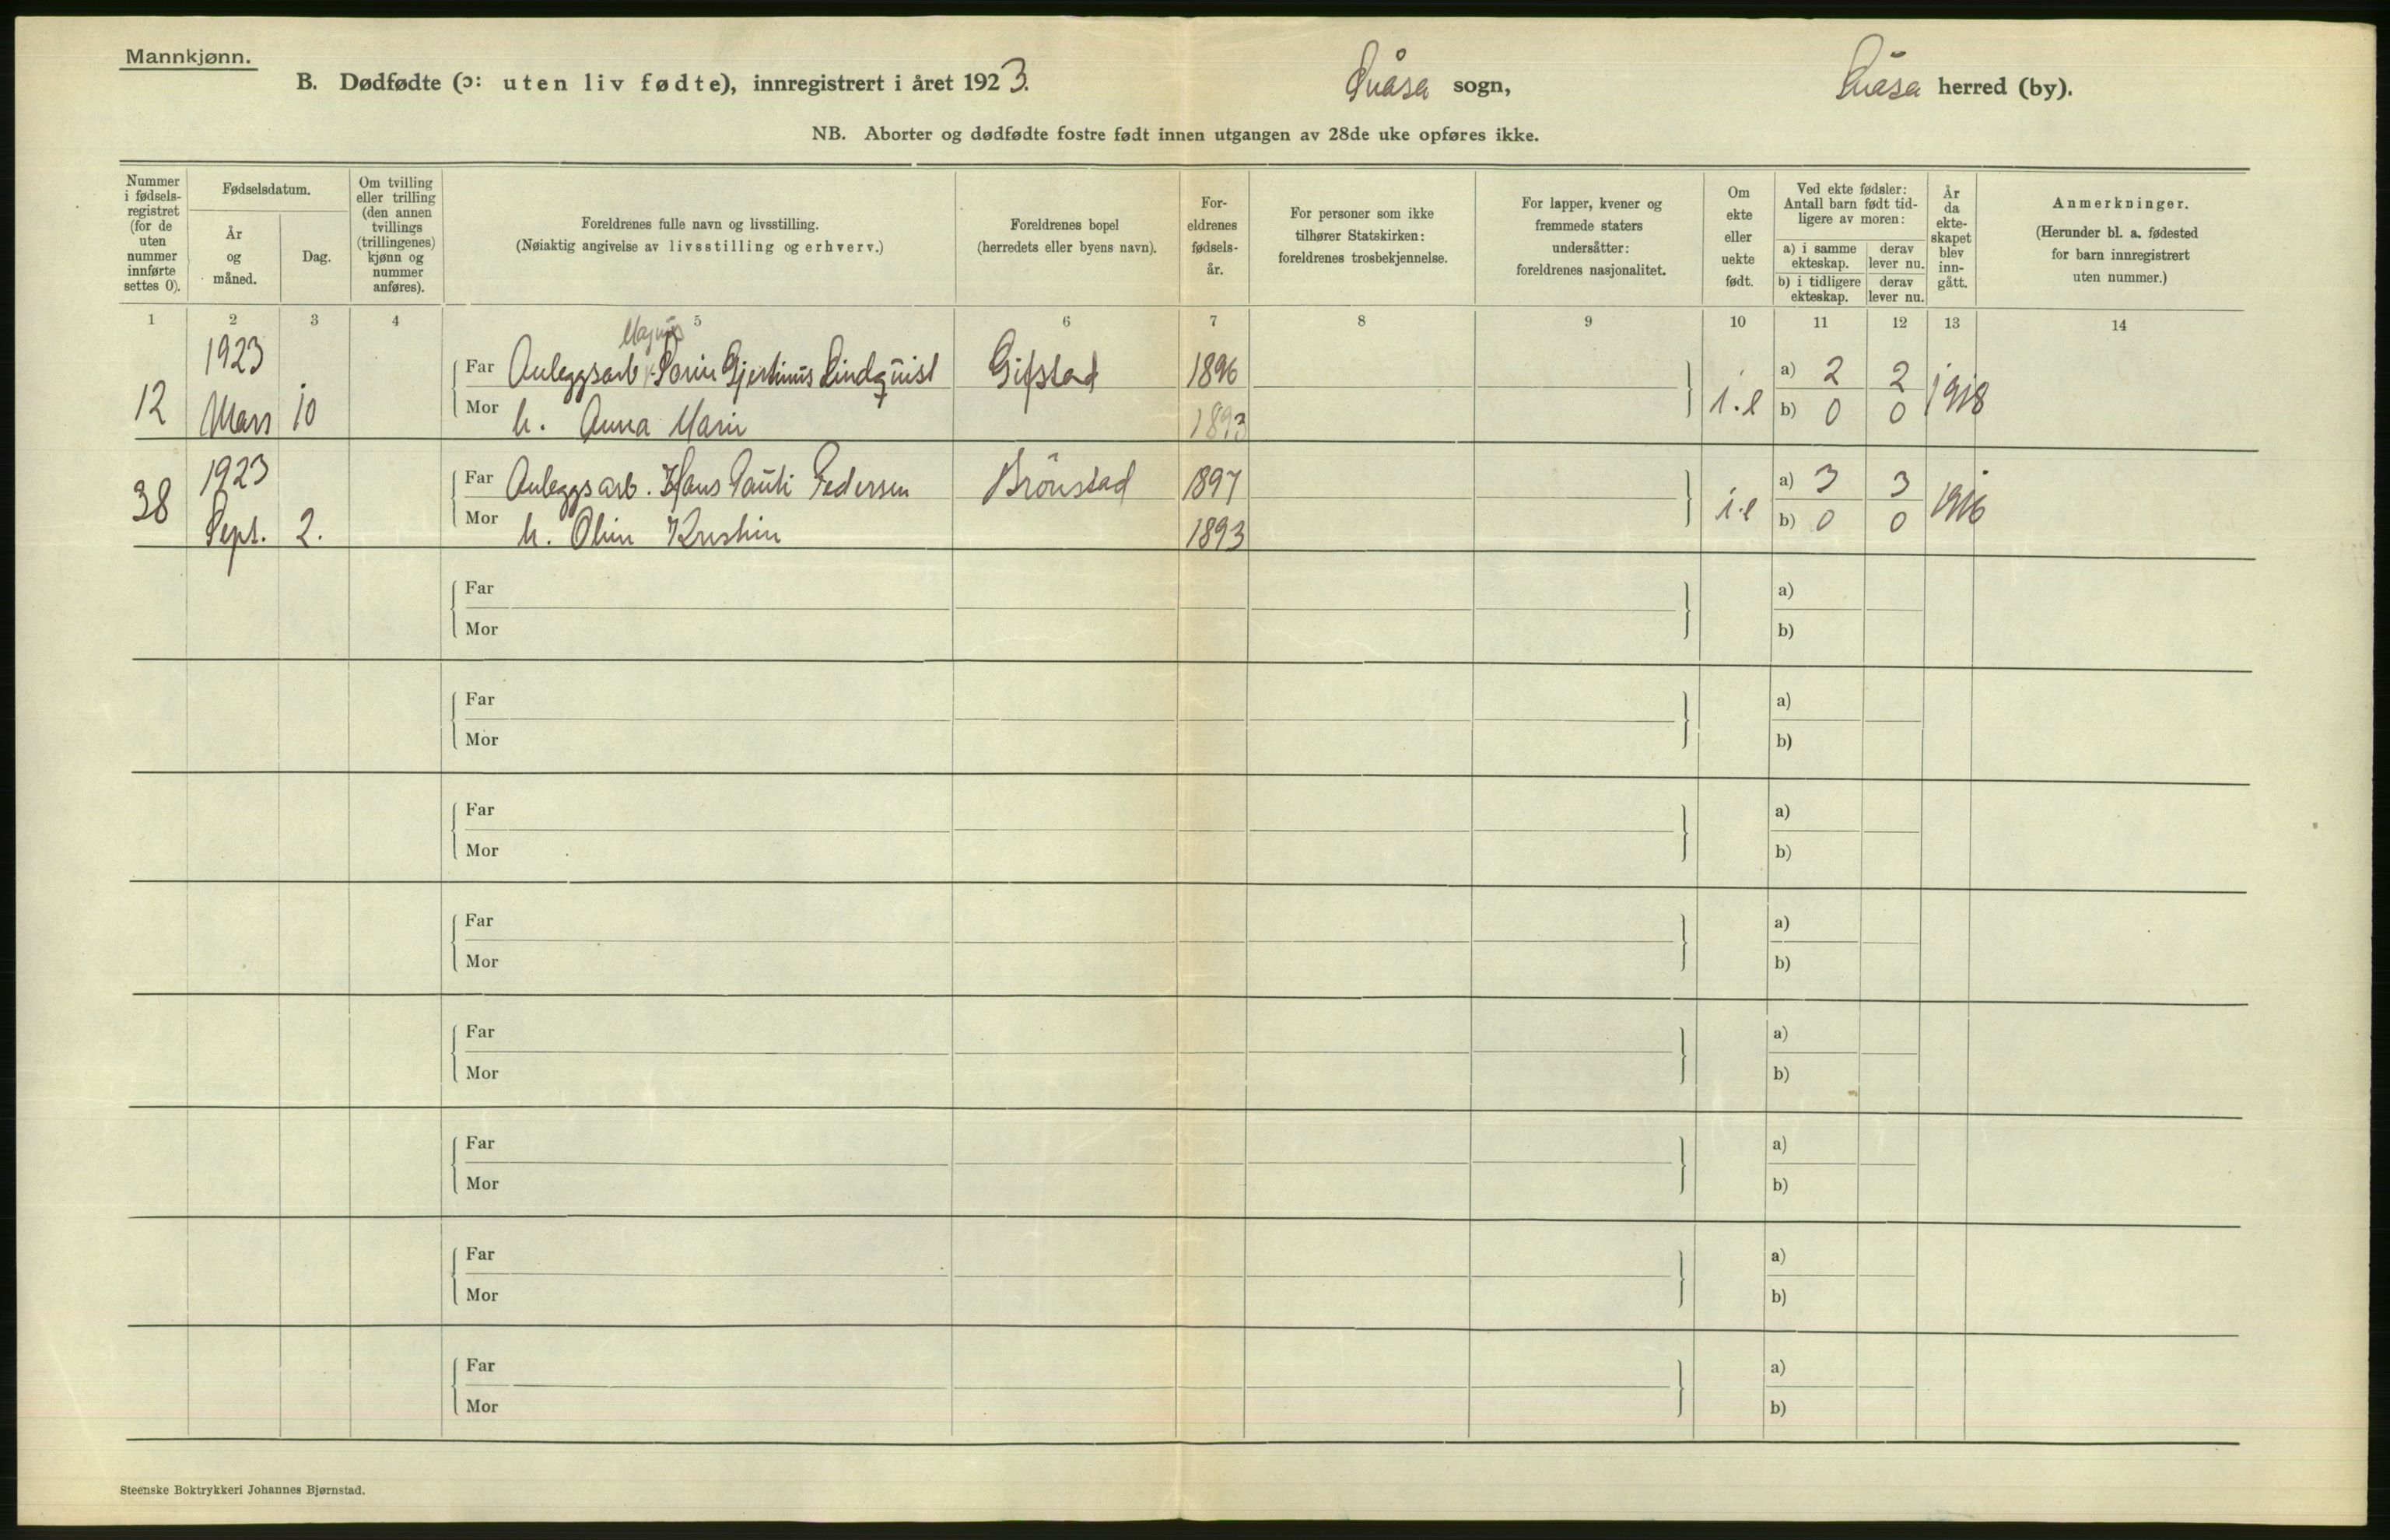 Mannkjønn.
B. Dødfødte (ɔ: uten liv fødte), innregistrert i året 1923. Snåsa sogn, Snåsa herred (by).
NB. Aborter og dødfødte fostre født innen utgangen av 28de uke opføres ikke.
Nummer i fødsels-registret (for de uten nummer innførte settes 0).
Fødselsdatum.
År og måned.
Dag.
Om tvilling eller trilling (den annen tvillings (trillingenes) kjønn og nummer anføres).
Foreldrenes fulle navn og livsstilling.
(Nøiaktig angivelse av livsstilling og erhverv.)
Foreldrenes bopel
(herredets eller byens navn).
For-eldrenes fødsels-år.
For personer som ikke tilhører Statskirken: foreldrenes trosbekjennelse.
For lapper, kvener og fremmede staters undersåtter: foreldrenes nasjonalitet.
Om ekte eller uekte født.
Ved ekte fødsler: Antall barn født tid-ligere av moren:
a) i samme ekteskap.
derav lever nu.
b) i tidligere ekteskap.
derav lever nu.
År da ekte-skapet blev inn-gått.
Anmerkninger.
(Herunder bl. a. fødested for barn innregistrert uten nummer.)
1 2 3 4 5 6 7 8 9 10 11 12 13 14
Magnus
1923 Far Anleggsarb. Gjertinus Lindquist Gifstad 1896 a) 2 2
12 Mars 10 Mor h. Anna Marie 1893 i.e b) 0 0 1918
1923 Far Anleggsarb. Hans Pauli Pedersen Brönstad 1897 a) 3 3
38 Sept. 2. Mor h. Oline Kristine 1893 i.e b) 0 0 1916
Far a)
Mor b)
Far a)
Mor b)
Far a)
Mor b)
Far a)
Mor b)
Far a)
Mor b)
Far a)
Mor b)
Far a)
Mor b)
Far a)
Mor b)
Steenske Boktrykkeri Johannes Bjørnstad.